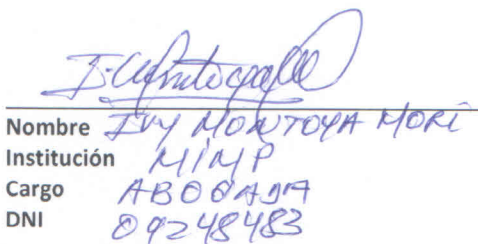 Nombre IVY MONTOYA MORI
Institución MIMP
Cargo ABOGADA
DNI 09248483